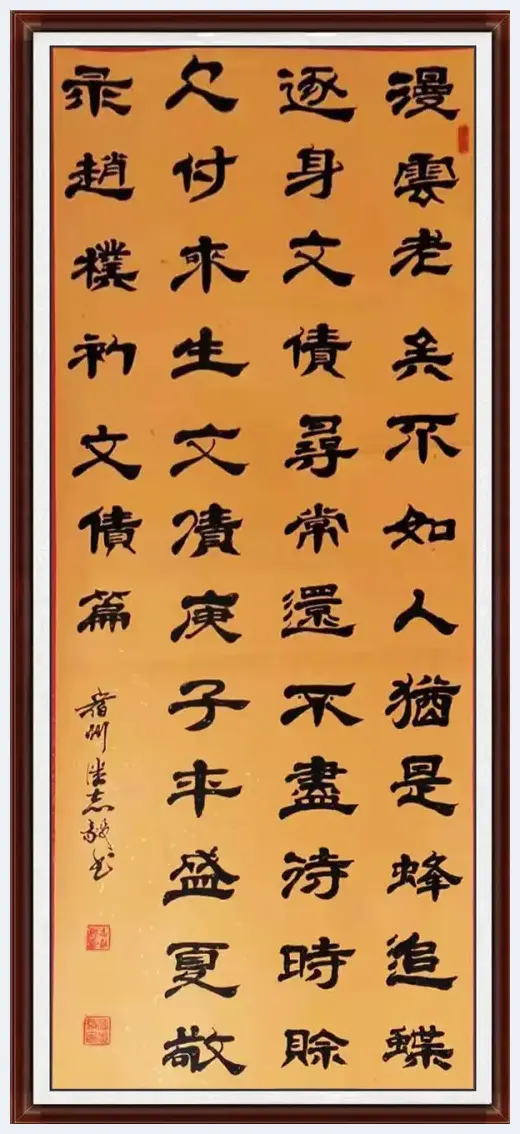 漫雲老矣不如人猶是蜂追蝶
逐身文債尋常還不盡待時賒
欠付來生文債庚子年盛夏敬
录趙樸初文債篇
志毅书